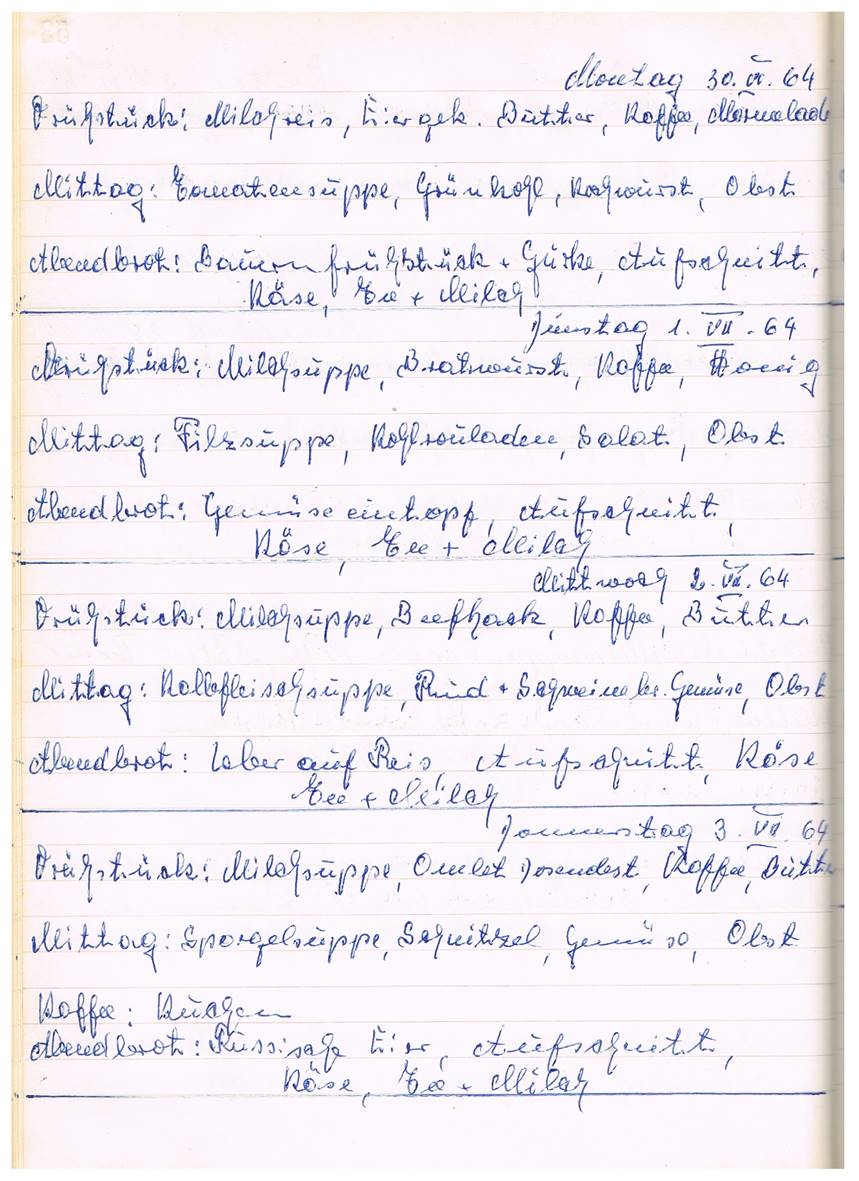 Montag 30. VI. 64
Frühstück: Milchreis, Eier gek. Butter, Kaffee, Marmelade
Mittag: Tomatensuppe, Grünkohl, Kochwurst, Obst
Abendbrot: Bauernfrühstück + Gurke, Aufschnitt,
Käse, Tee + Milch
Dienstag 1. VII. 64
Frühstück: Milchsuppe, Bratwurst, Kaffee, Honig
Mittag: Pilzsuppe, Kohlrouladen, Salat, Obst
Abendbrot: Gemüseeintopf, Aufschnitt,
Käse, Tee + Milch
Mittwoch 2. VII. 64
Frühstück: Milchsuppe, Beefhack, Kaffee, Butter
Mittag: Kalbfleischsuppe, Rind + Schweinebr. Gemüse, Obst
Abendbrot: Leber auf Reis, Aufschnitt, Käse
Tee + Milch
Donnerstag 3. VII. 64
Frühstück: Milchsuppe, Omlet, Kaffee, Butter
Mittag: Spargelsuppe, Schnitzel, Gemüse, Obst
Kaffee: Kuchen
Abendbrot: Russische Eier, Aufschnitt,
Käse, Tee + Milch